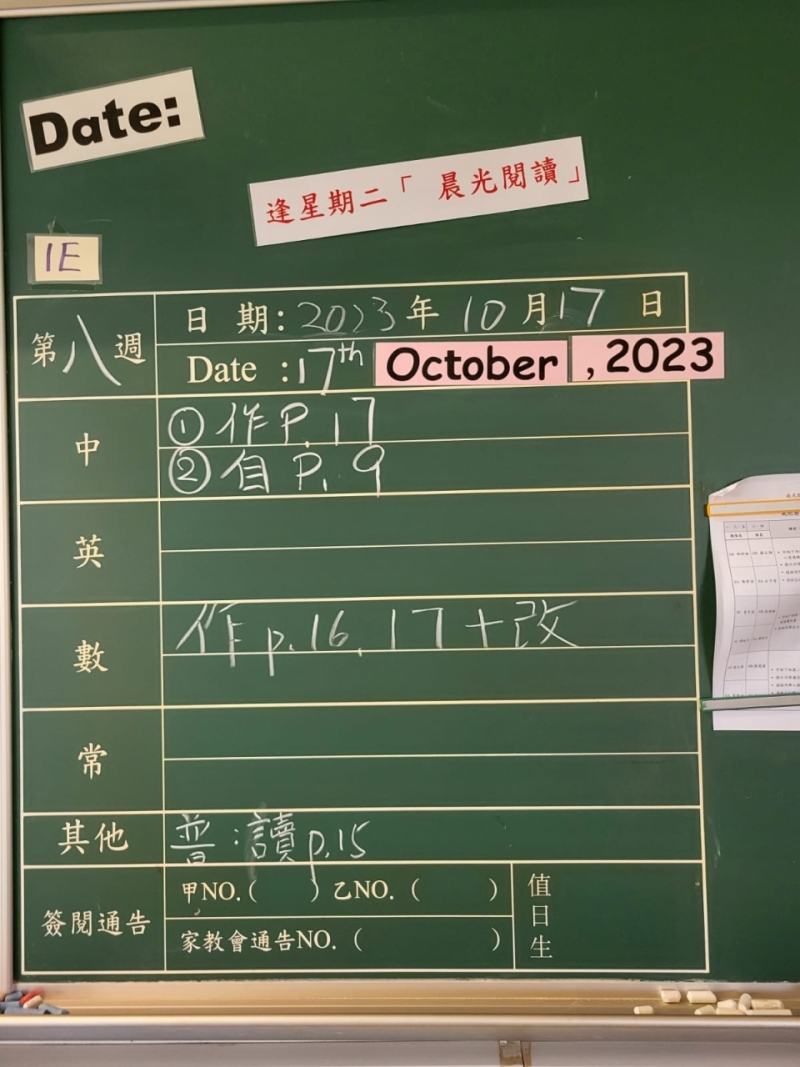 Date:
逢星期二「晨光閱讀」
1E
第八週
日期:2023年10月17日
Date :17th October , 2023
中
①作P.17
②自P.9
英
數
作p.16,17+改
常
其他
普:讀p.15
簽閱通告
甲NO.( )乙NO.( )
家教會通告NO.( )
值日生